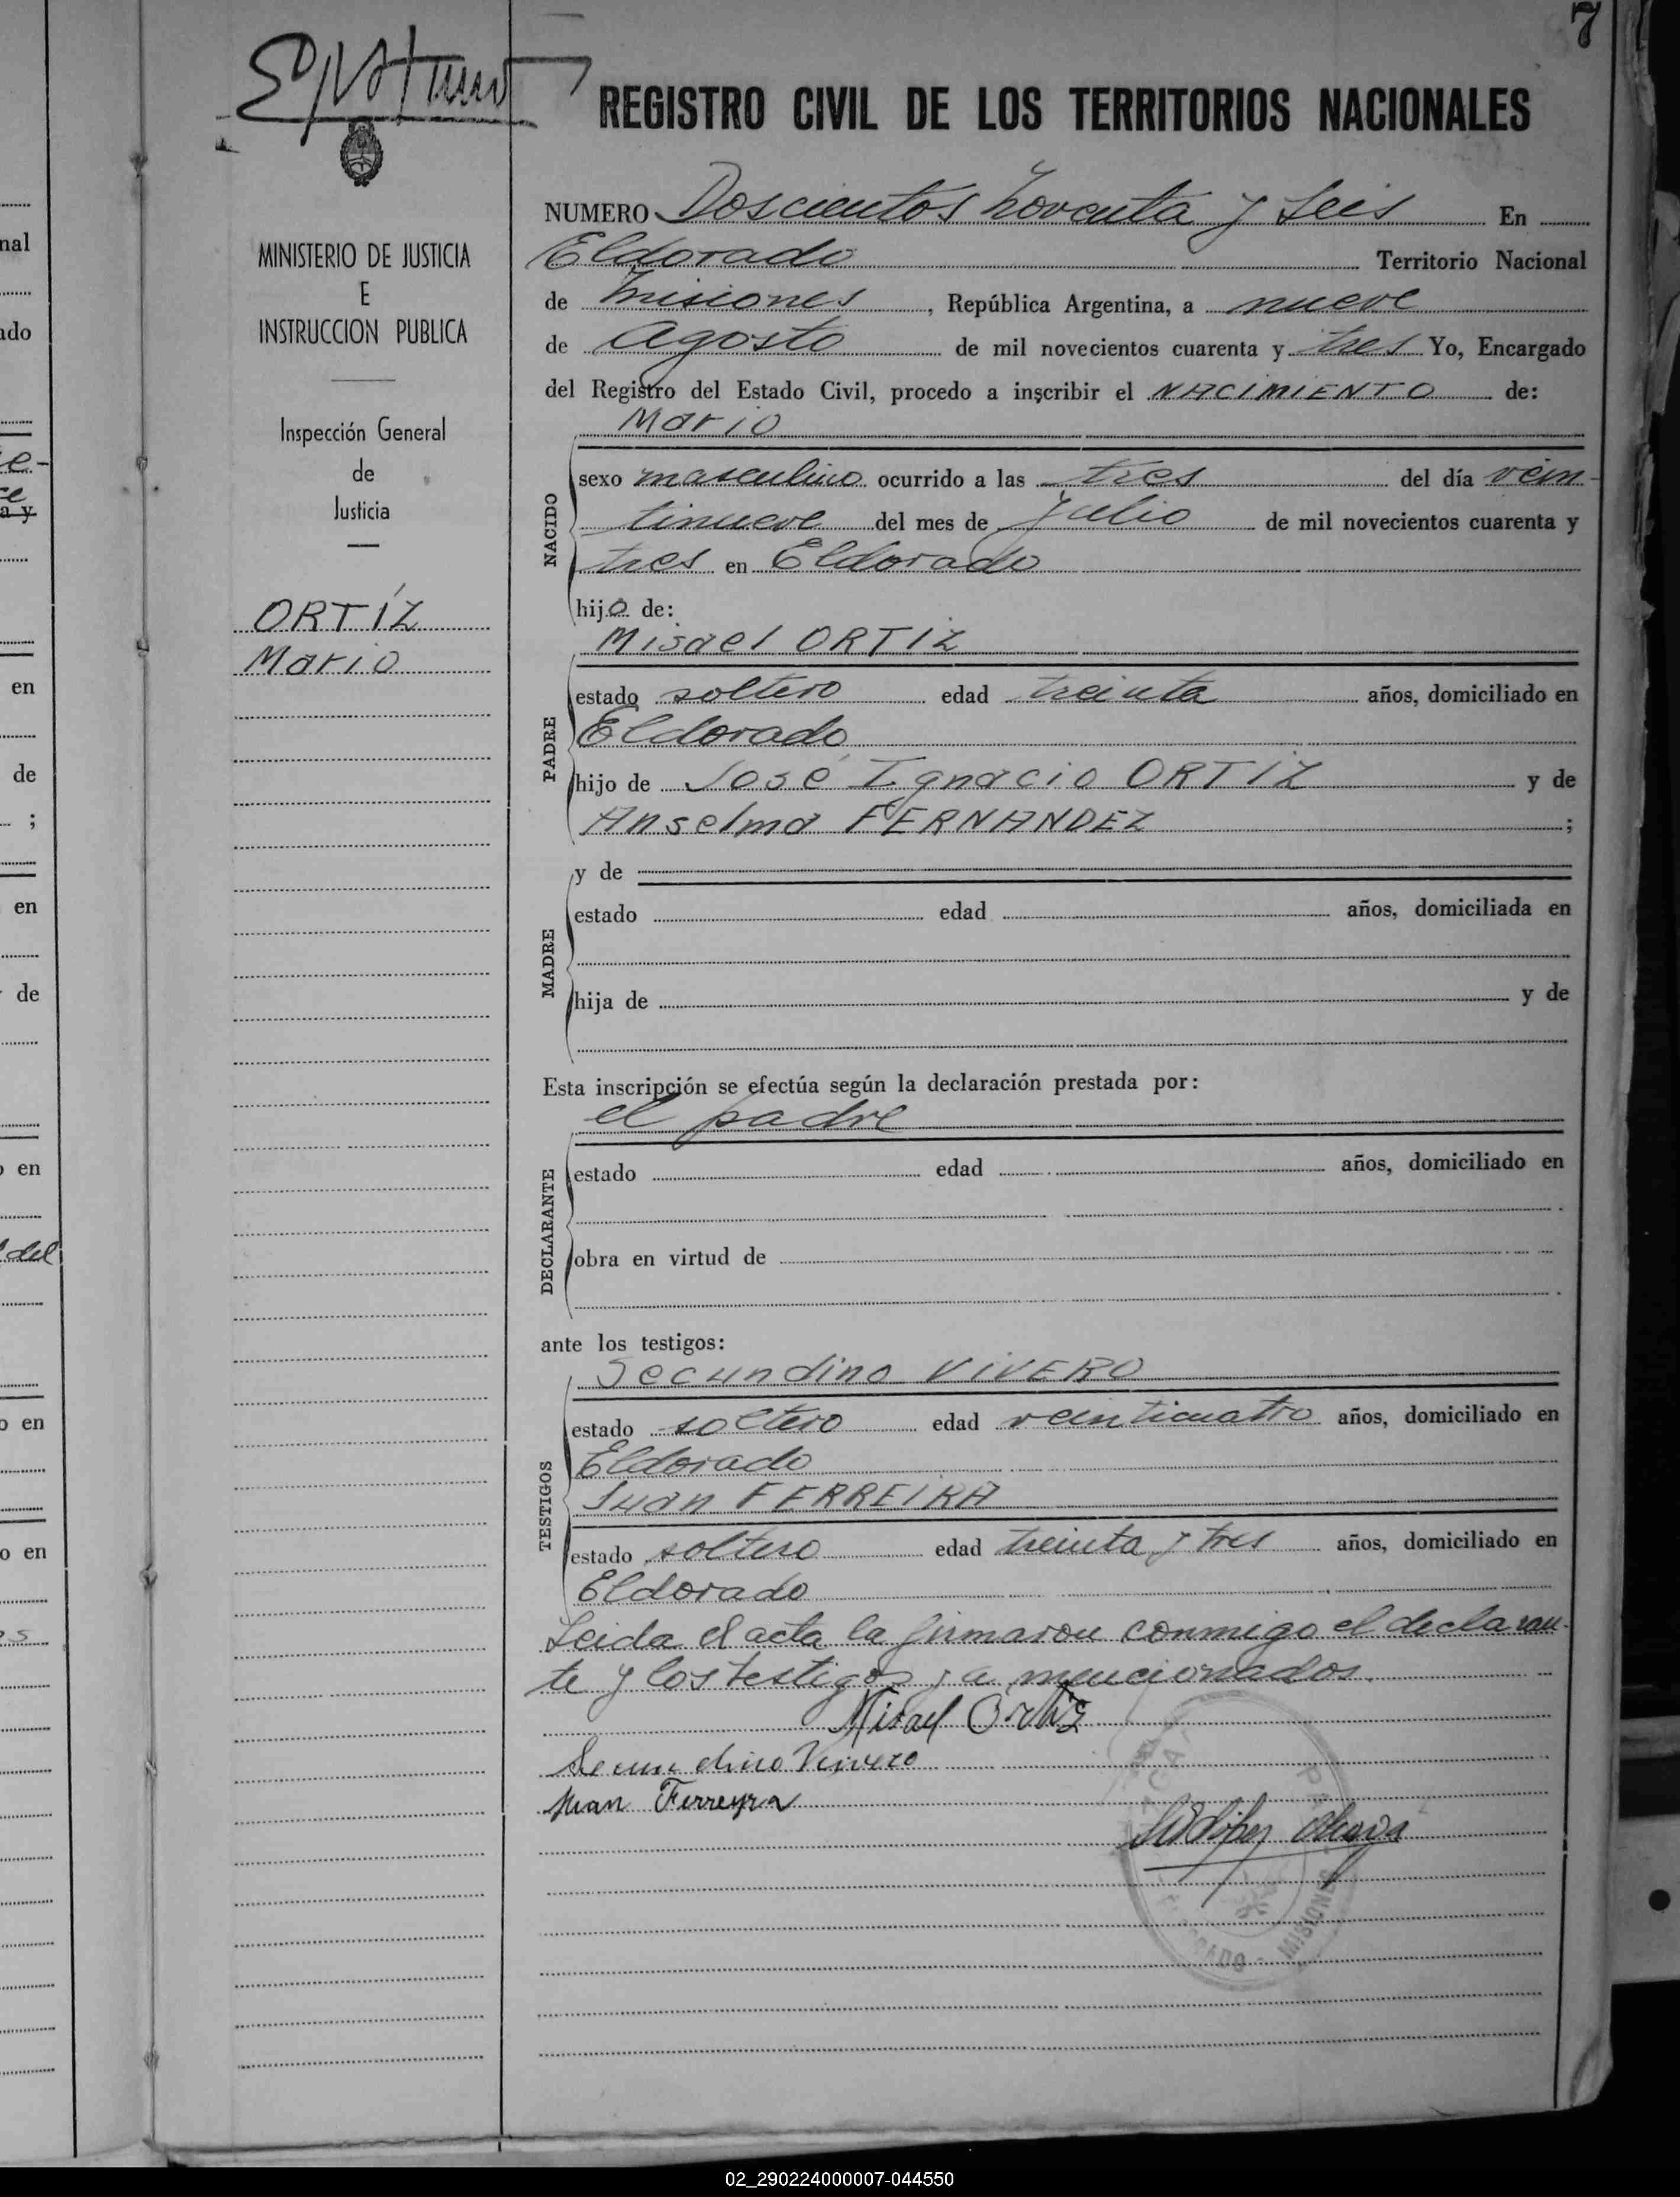 7
REGISTRO CIVIL DE LOS TERRITORIOS NACIONALES
MINISTERIO DE JUSTICIA
E
INSTRUCCION PUBLICA
Inspección General
de
Justicia
ORTÍZ
Mario
NUMERO Doscientos noventa y seis En
Eldorado Territorio Nacional
de Misiones, República Argentina, a nueve
de Agosto de mil novecientos cuarenta y tres Yo, Encargado
del Registro del Estado Civil, procedo a inscribir el NACIMIENTO de:
Mario
NACIDO
sexo masculino ocurrido a las tres del día vein-
tinueve del mes de Julio de mil novecientos cuarenta y
tres en Eldorado
hijo de:
Misael ORTIZ
PADRE
estado soltero edad treinta años, domiciliado en
Eldorado
hijo de José Ignacio ORTIZ y de
Anselma FERNANDEZ ;
MADRE
y de
estado edad años, domiciliada en
hija de y de
Esta inscripción se efectúa según la declaración prestada por:
el padre
DECLARANTE
estado edad años, domiciliado en
obra en virtud de
ante los testigos:
Secundino VIVERO
TESTIGOS
estado soltero edad veinticuatro años, domiciliado en
Eldorado
Juan FERREIRA
estado soltero edad treinta y tres años, domiciliado en
Eldorado
Leida el acta la firmaron conmigo el declaran-
te y los testigos ya mencionados.
Misael Ortiz
Secundino Vivero
Juan Ferreyra
MISIONES
nal
ado
en
de
;
en
de
en
del
o en
o en
02_290224000007-044550